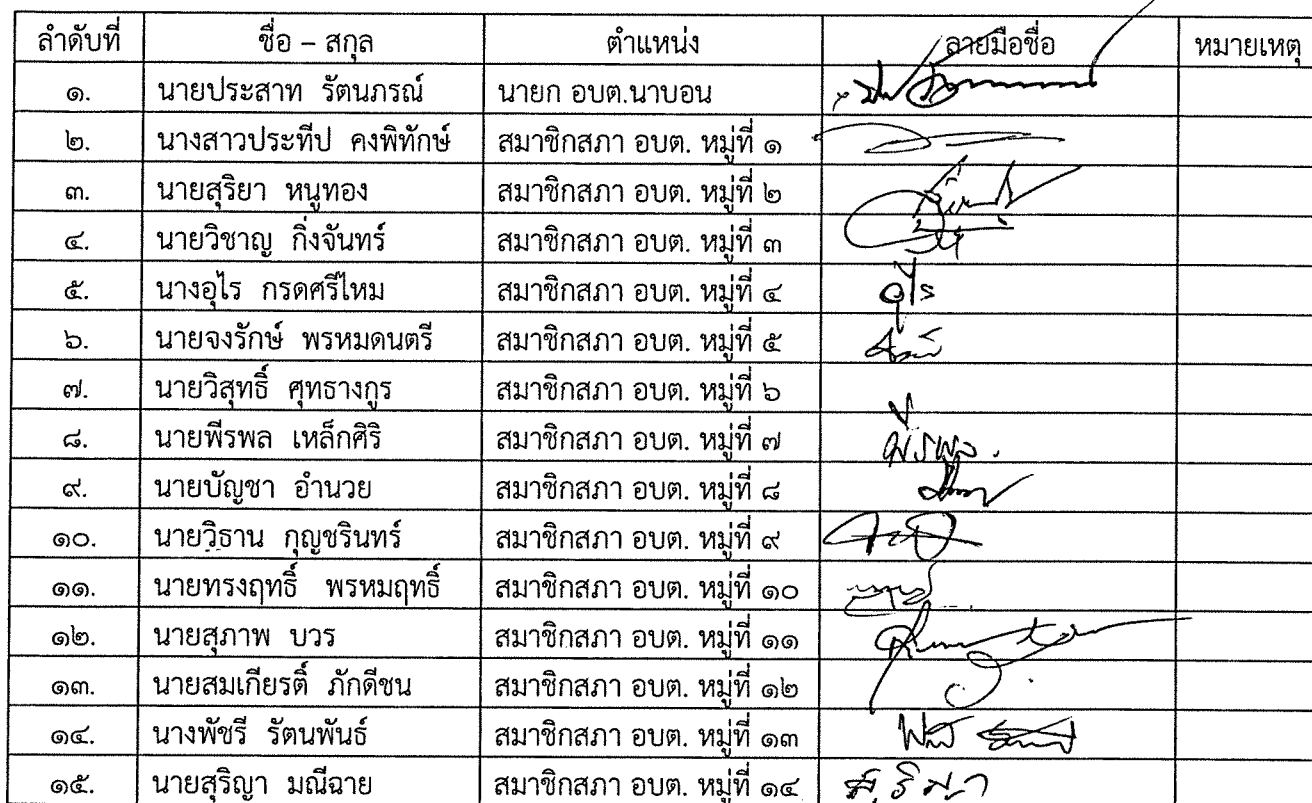 ลำดับที่ ชื่อ – สกุล ตำแหน่ง ลายมือชื่อ หมายเหตุ
๑. นายประสาท รัตนภรณ์ นายก อบต.นาบอน
๒. นางสาวประทีป คงพิทักษ์ สมาชิกสภา อบต. หมู่ที่ ๑
๓. นายสุริยา หนูทอง สมาชิกสภา อบต. หมู่ที่ ๒
๔. นายวิชาญ กิ่งจันทร์ สมาชิกสภา อบต. หมู่ที่ ๓
๕. นางอุไร กรดศรีไหม สมาชิกสภา อบต. หมู่ที่ ๔ อุไร
๖. นายจงรักษ์ พรหมดนตรี สมาชิกสภา อบต. หมู่ที่ ๕
๗. นายวิสุทธิ์ ศุทธางกูร สมาชิกสภา อบต. หมู่ที่ ๖
๘. นายพีรพล เหล็กศิริ สมาชิกสภา อบต. หมู่ที่ ๗ พีรพล
๙. นายบัญชา อำนวย สมาชิกสภา อบต. หมู่ที่ ๘
๑๐. นายวิธาน กุญชรินทร์ สมาชิกสภา อบต. หมู่ที่ ๙
๑๑. นายทรงฤทธิ์ พรหมฤทธิ์ สมาชิกสภา อบต. หมู่ที่ ๑๐
๑๒. นายสุภาพ บวร สมาชิกสภา อบต. หมู่ที่ ๑๑
๑๓. นายสมเกียรติ์ ภักดีชน สมาชิกสภา อบต. หมู่ที่ ๑๒
๑๔. นางพัชรี รัตนพันธ์ สมาชิกสภา อบต. หมู่ที่ ๑๓
๑๕. นายสุริญา มณีฉาย สมาชิกสภา อบต. หมู่ที่ ๑๔ สุริญา